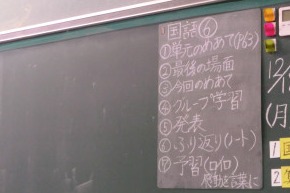 国語⑥
①単元のめあて(P63)
②最後の場面
③今回のめあて
④グループ学習
⑤発表
⑥ふり返り(ノート)
⑦予習(ロイロ)
感動を言葉に
12/
(月
1国
2